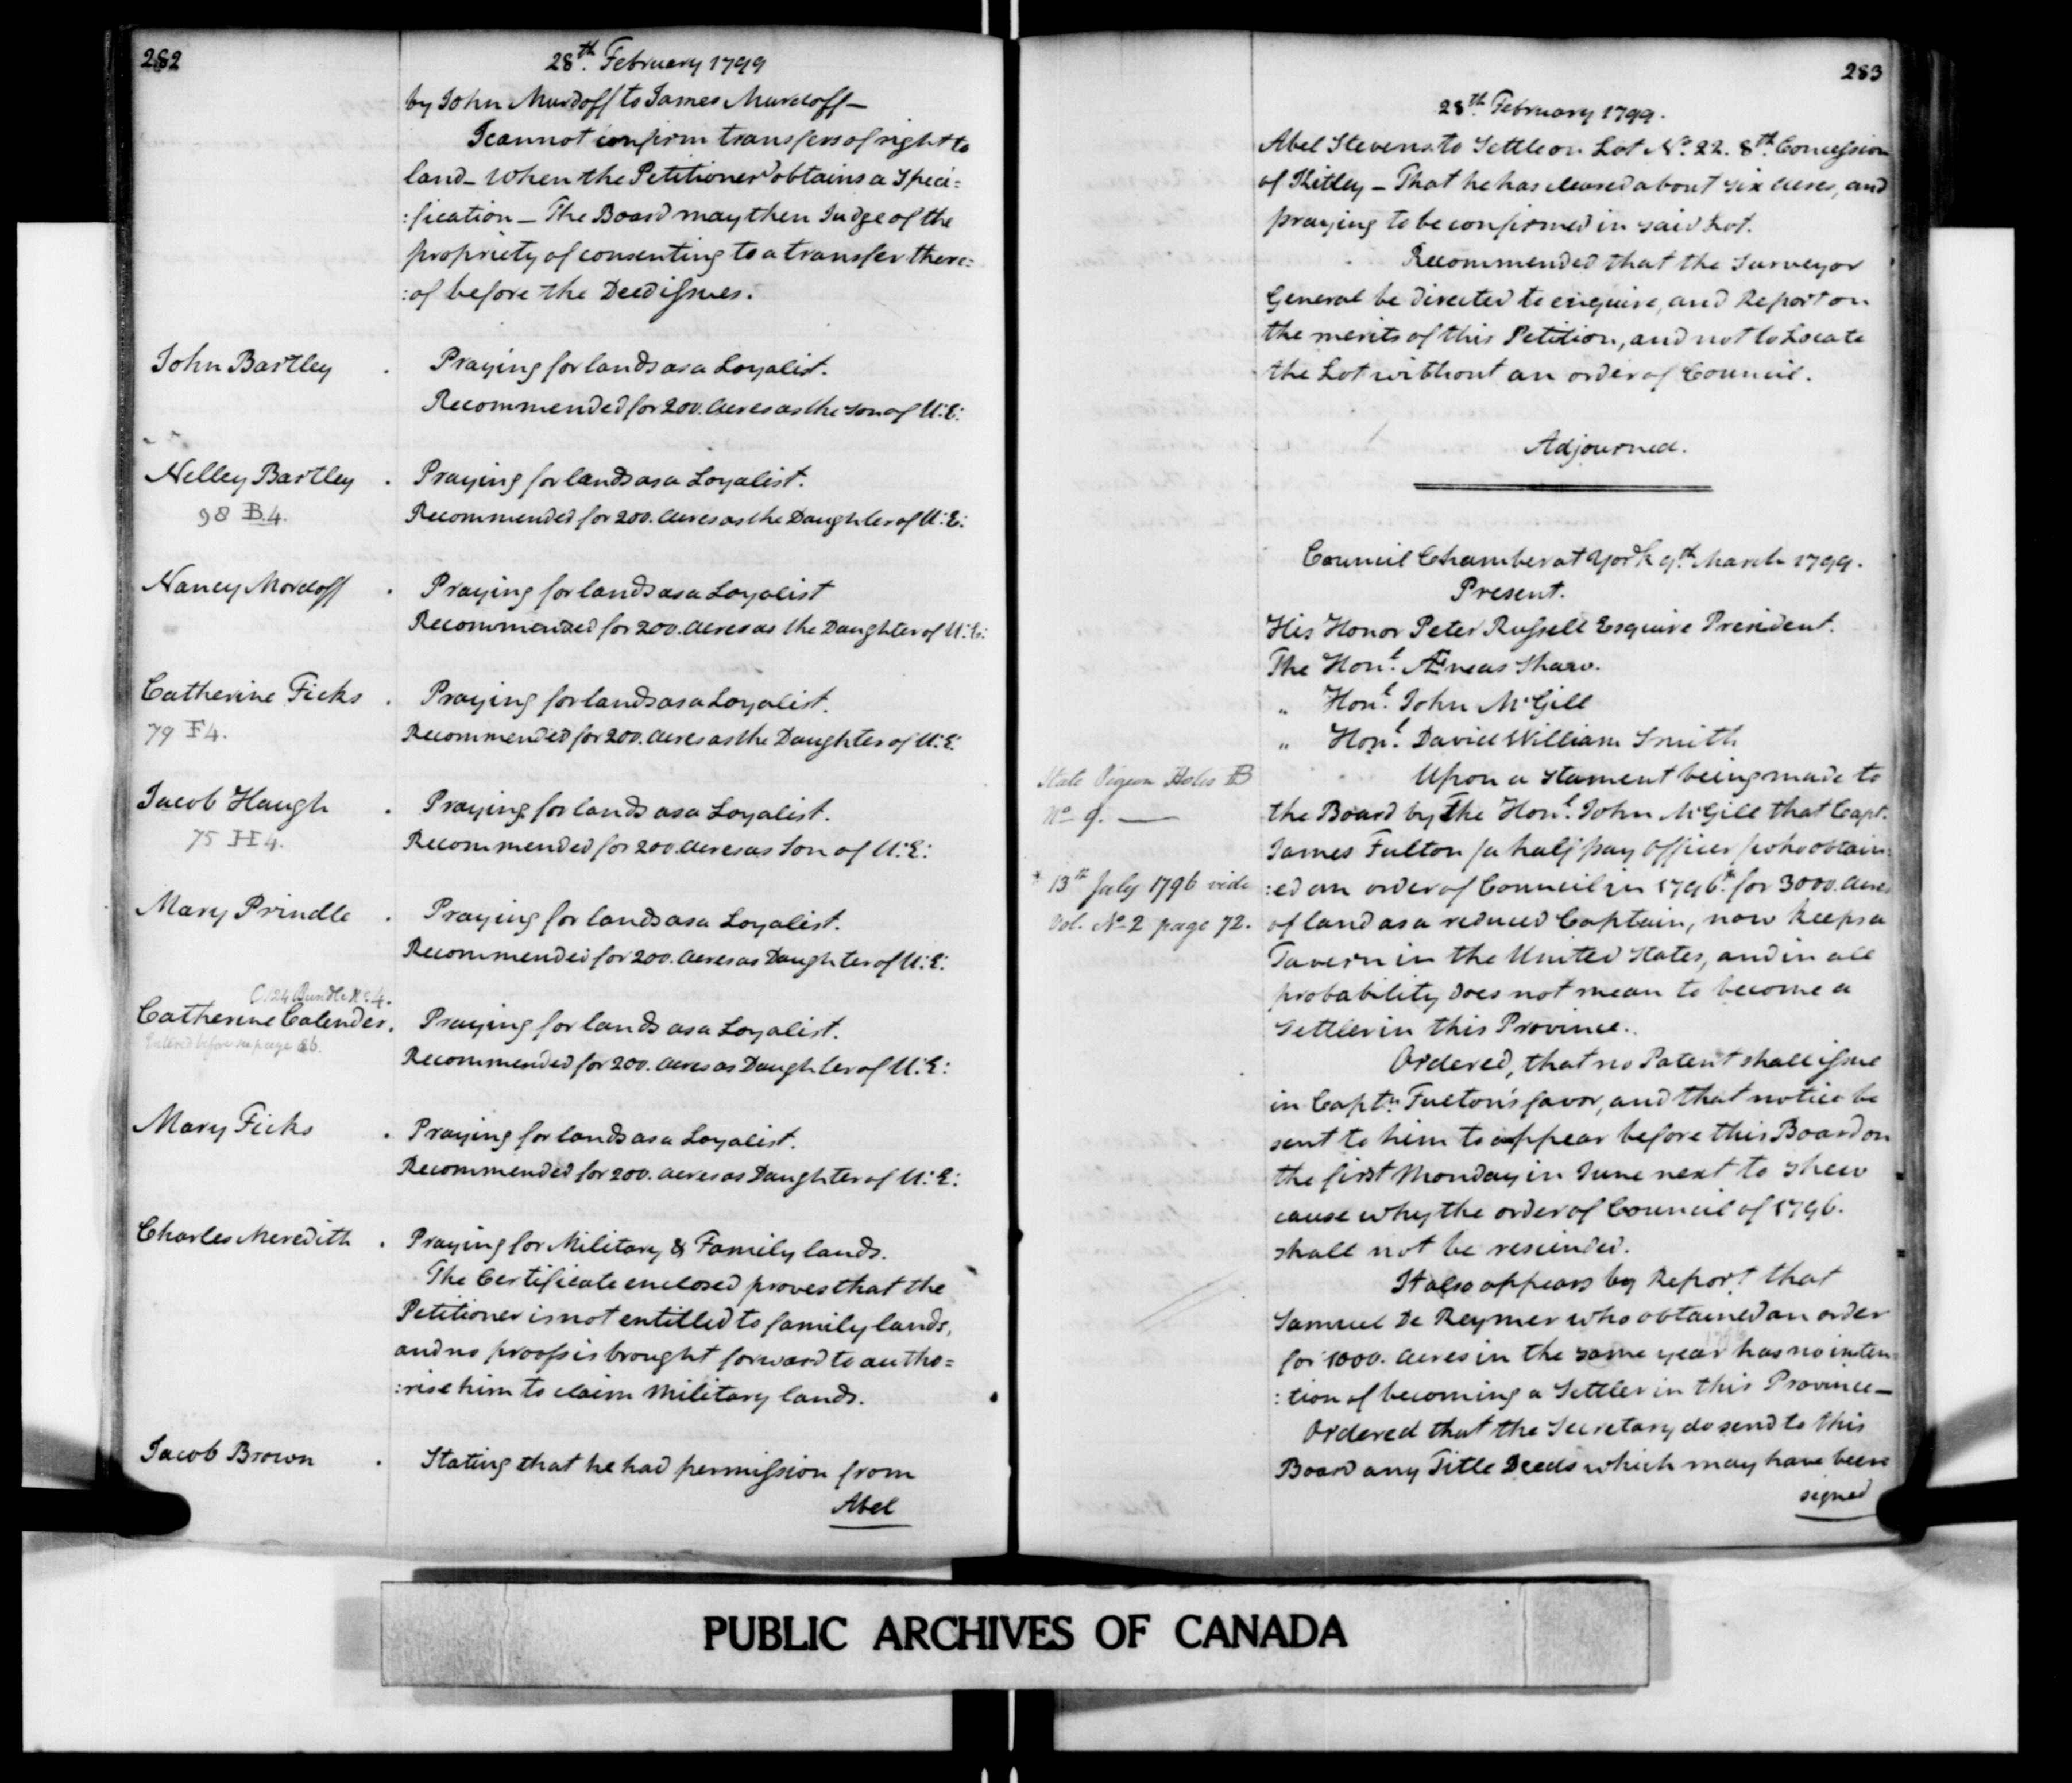 282
28th. February 1799
by John Murdoff to James Murdoff—
I cannot confirm transfers of right to
land— When the Petitioner obtains a Speci=
:fication— The Board may then Judge of the
propriety of consenting to a transfer there=
:of before the Deed issues.
John Bartley . Praying for lands as a Loyalist.
Recommended for 200. Acres as the son of U:E:
Nelley Bartley . Praying for lands as a Loyalist.
98 B.4. Recommended for 200. Acres as the Daughter of U:E:
Nancy Mordoff . Praying for lands as a Loyalist
Recommended for 200. Acres as the Daughter of U:E:
Catherine Ficks . Praying for lands as a Loyalist.
79 F4. Recommended for 200. Acres as the Daughter of U:E:
Jacob Haugh . Praying for lands as a Loyalist.
75 H4. Recommended for 200 Acres as Son of U:E:
Mary Prindle . Praying for lands as a Loyalist.
Recommended for 200. Acres as Daughter of U:E:
C124 Bundle No. 4.
Catherine Calender. Praying for lands as a Loyalist.
Entered before see page 86.
Recommended for 200. Acres as Daughter of U:E:
Mary Ficks . Praying for lands as a Loyalist.
Recommended for 200. Acres as Daughter of U:E:
Charles Meredith . Praying for Military & Family lands.
The Certificate enclosed proves that the
Petitioner is not entitled to family lands,
and no proofs is brought forward to autho=
:rise him to claim Military lands.
Jacob Brown . Stating that he had permission from
Abel
283
28th. February 1799.
Abel Stevens to Settle on Lot No. 22. 8th. Concession
of Kitley— That he has cleared about six acres, and
praying to be confirmed in said Lot.
Recommended that the Surveyor
General be directed to enquire, and Report on
the merits of this Petition, and not to Locate
the Lot without an order of Council.
Adjourned.
Council Chamber at York 9th. March 1799.
Present.
His Honor Peter Russell Esquire President.
The Honl. Æneas Shaw.
" Honl. John McGill
" Honl. David William Smith
State Pigeon Holes B
No 9. —
Upon a stament being made to
the Board by The Honl. John McGill that Capt.
James Fulton (a half pay Officer) who obtain:
* 13th July 1796 vide
Vol. No 2 page 72.
:ed an order of Council in 1796* for 3000. Acres
of land as a reduced Captain, now keeps a
Tavern in the United States, and in all
probability does not mean to become a
Settler in this Province.
Ordered, that no Patent shall issue
in Captn. Fulton's favor, and that notice be
sent to him to appear before this Board on
the first Monday in June next to shew
cause why the order of Council of 1796.
shall not be rescinded.
It also appears by Report that
Samuel De Reymer who obtained an order
for 1000. Acres in the same year has no inten=
:tion of becoming a Settler in this Province—
Ordered that the Secretary do send to this
Board any Title Deeds which may have been
signed
PUBLIC ARCHIVES OF CANADA